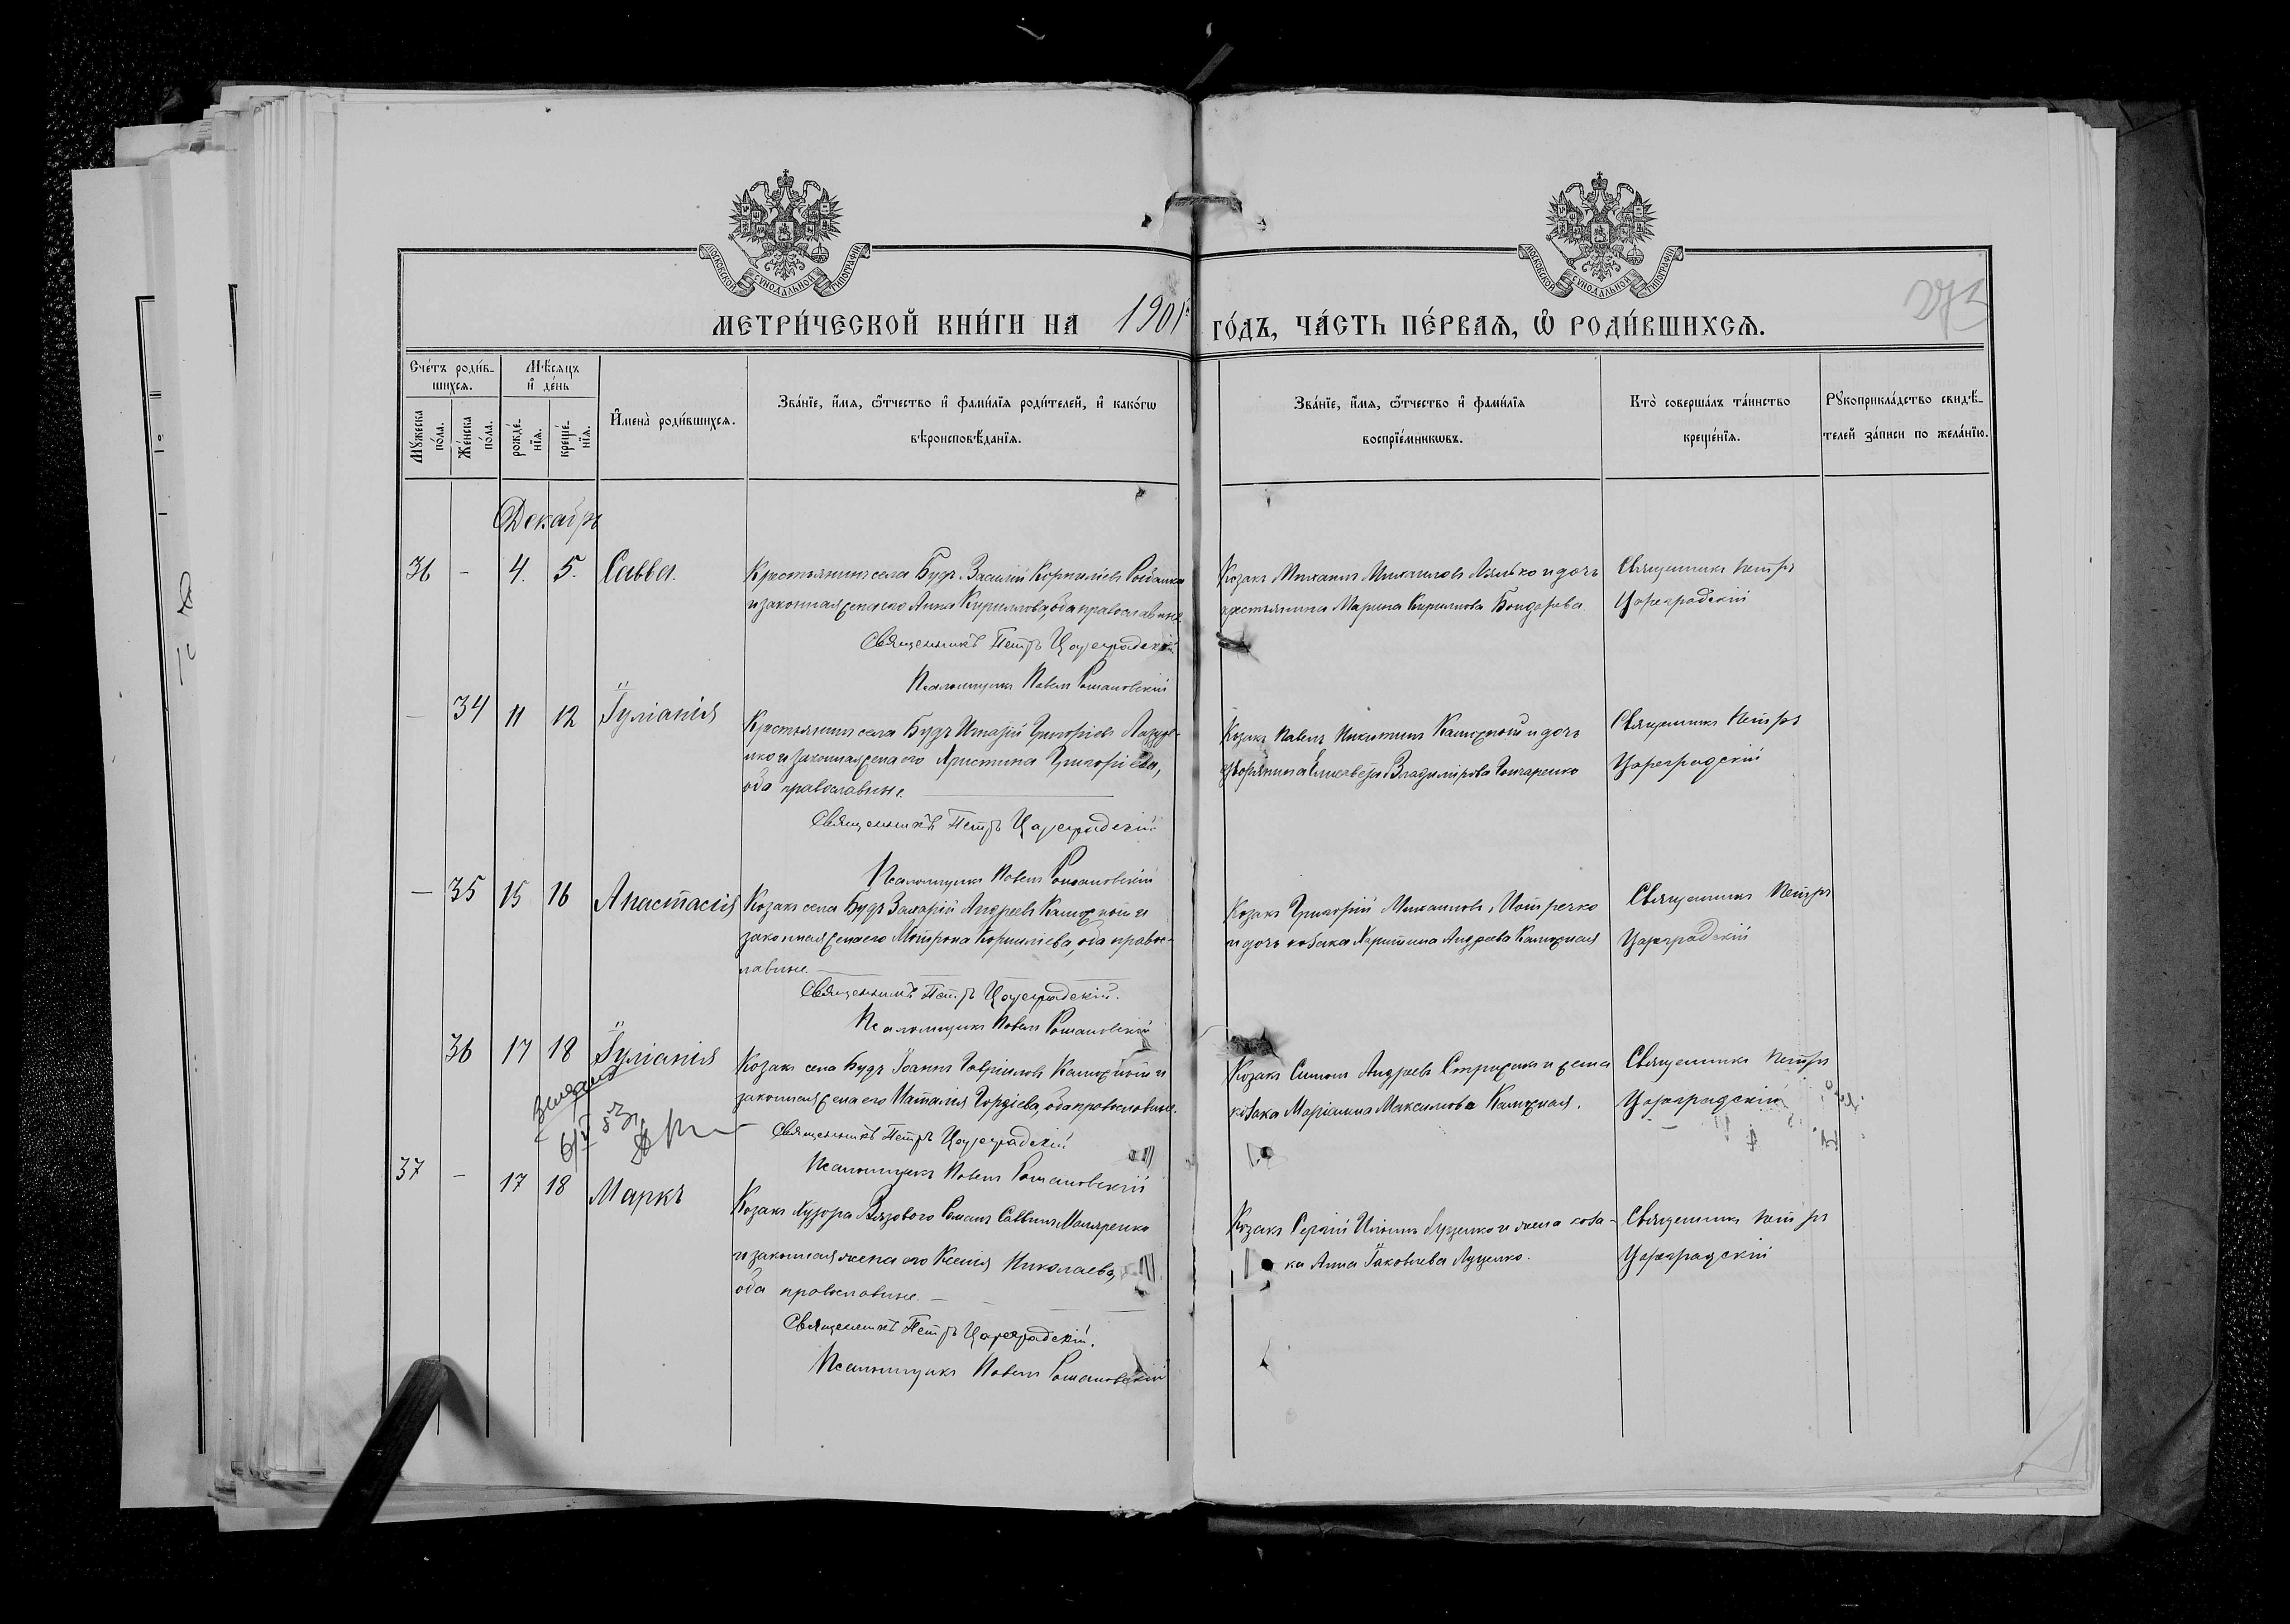 МОСКОВСКОЙ СУНОДАЛЬНОЙ ТИПОГРАФІИ
МОСКОВСКОЙ СУНОДАЛЬНОЙ ТИПОГРАФІИ
МЕТРИ́ЧЕСКОЙ КНИ́ГИ НА 1901 ГО́ДЪ, ЧА́СТЬ ПЕ́РВАѦ, Ѡ РОДИ́ВШИХСѦ.
273
Сче́тъ роди́в-
шихсѧ.
Мѣ́сѧцъ
и҆ де́нь
Мꙋ́жеска
по́ла.
Же́нска
по́ла.
рожде́-
нїѧ.
креще́-
нїѧ.
И҆мена̀ роди́вшихсѧ.
Зва́нїе, и҆́мѧ, ѻ҆́тчество и҆ фами́лїѧ роди́телей, и҆ како́гѡ
вѣроисповѣ́данїѧ.
Зва́нїе, и҆́мѧ, ѻ҆́тчество и҆ фами́лїѧ
воспрїе́мникѡвъ.
Кто̀ соверша́лъ та́инство
креще́нїѧ.
Рꙋкоприкла́дство свидѣ́-
телей за́писи по жела́нїю.
Декабрь
36 – 4. 5. Савва.
Крестьянинъ села Будъ Василій Корниліевъ
и законная жена его Анна Кириллова, оба православные
Священникъ Петръ Цареградскій
Псаломщикъ Павелъ Романовскій
Козакъ Михаилъ Михаиловъ Лялько и дочь
крестьянина Марина Кириллова Бондарева
Священникъ Петръ
Цареградскій
– 34 11 12 Іуліанія
Крестьянинъ села Будъ Игнатій Григоріевъ Лазур-
нко и законная жена его Христина Григоріева,
оба православные.
Священникъ Петръ Цареградскій
Псаломщикъ Павелъ Романовскій
Козакъ Павелъ Никитинъ Калюжный и дочь
дворянина Елисавета Владимірова Гончаренко
Священникъ Петръ
Цареградскій
– 35 15 16 Анастасія
Козакъ села Будъ Захарій Андреевъ Калюжный и
законная жена его Мотрона Корниліева, оба право-
славные.
Священникъ Петръ Цареградскій.
Псаломщикъ Павелъ Романовскій
Козакъ Григорій Михаиловъ
и дочь козака Харитина Андреева Калюжная
Священникъ Петръ
Цареградскій
36 17 18 Іуліанія
Козакъ села Будъ Іоаннъ Гавріиловъ Калюжный и
законная жена его Наталія Гордіева, оба православные.
Священникъ Петръ Цареградскій
Псаломщикъ Павелъ Романовскій
Козакъ Симонъ Андреевъ Стрижакъ и жена
козака Маріанна Максимова Калюжная.
Священникъ Петръ
Цареградскій
37 – 17 18 Маркъ
Козакъ хутора Вязового Романъ Саввинъ Маляренко
и законная жена его Ксенія Николаева,
оба православные.
Священникъ Петръ Цареградскій.
Псаломщикъ Павелъ Романовскій
Козакъ Сергій Ильинъ Луценко и жена коза-
ка Анна Іаковлева Луценко.
Священникъ Петръ
Цареградскій